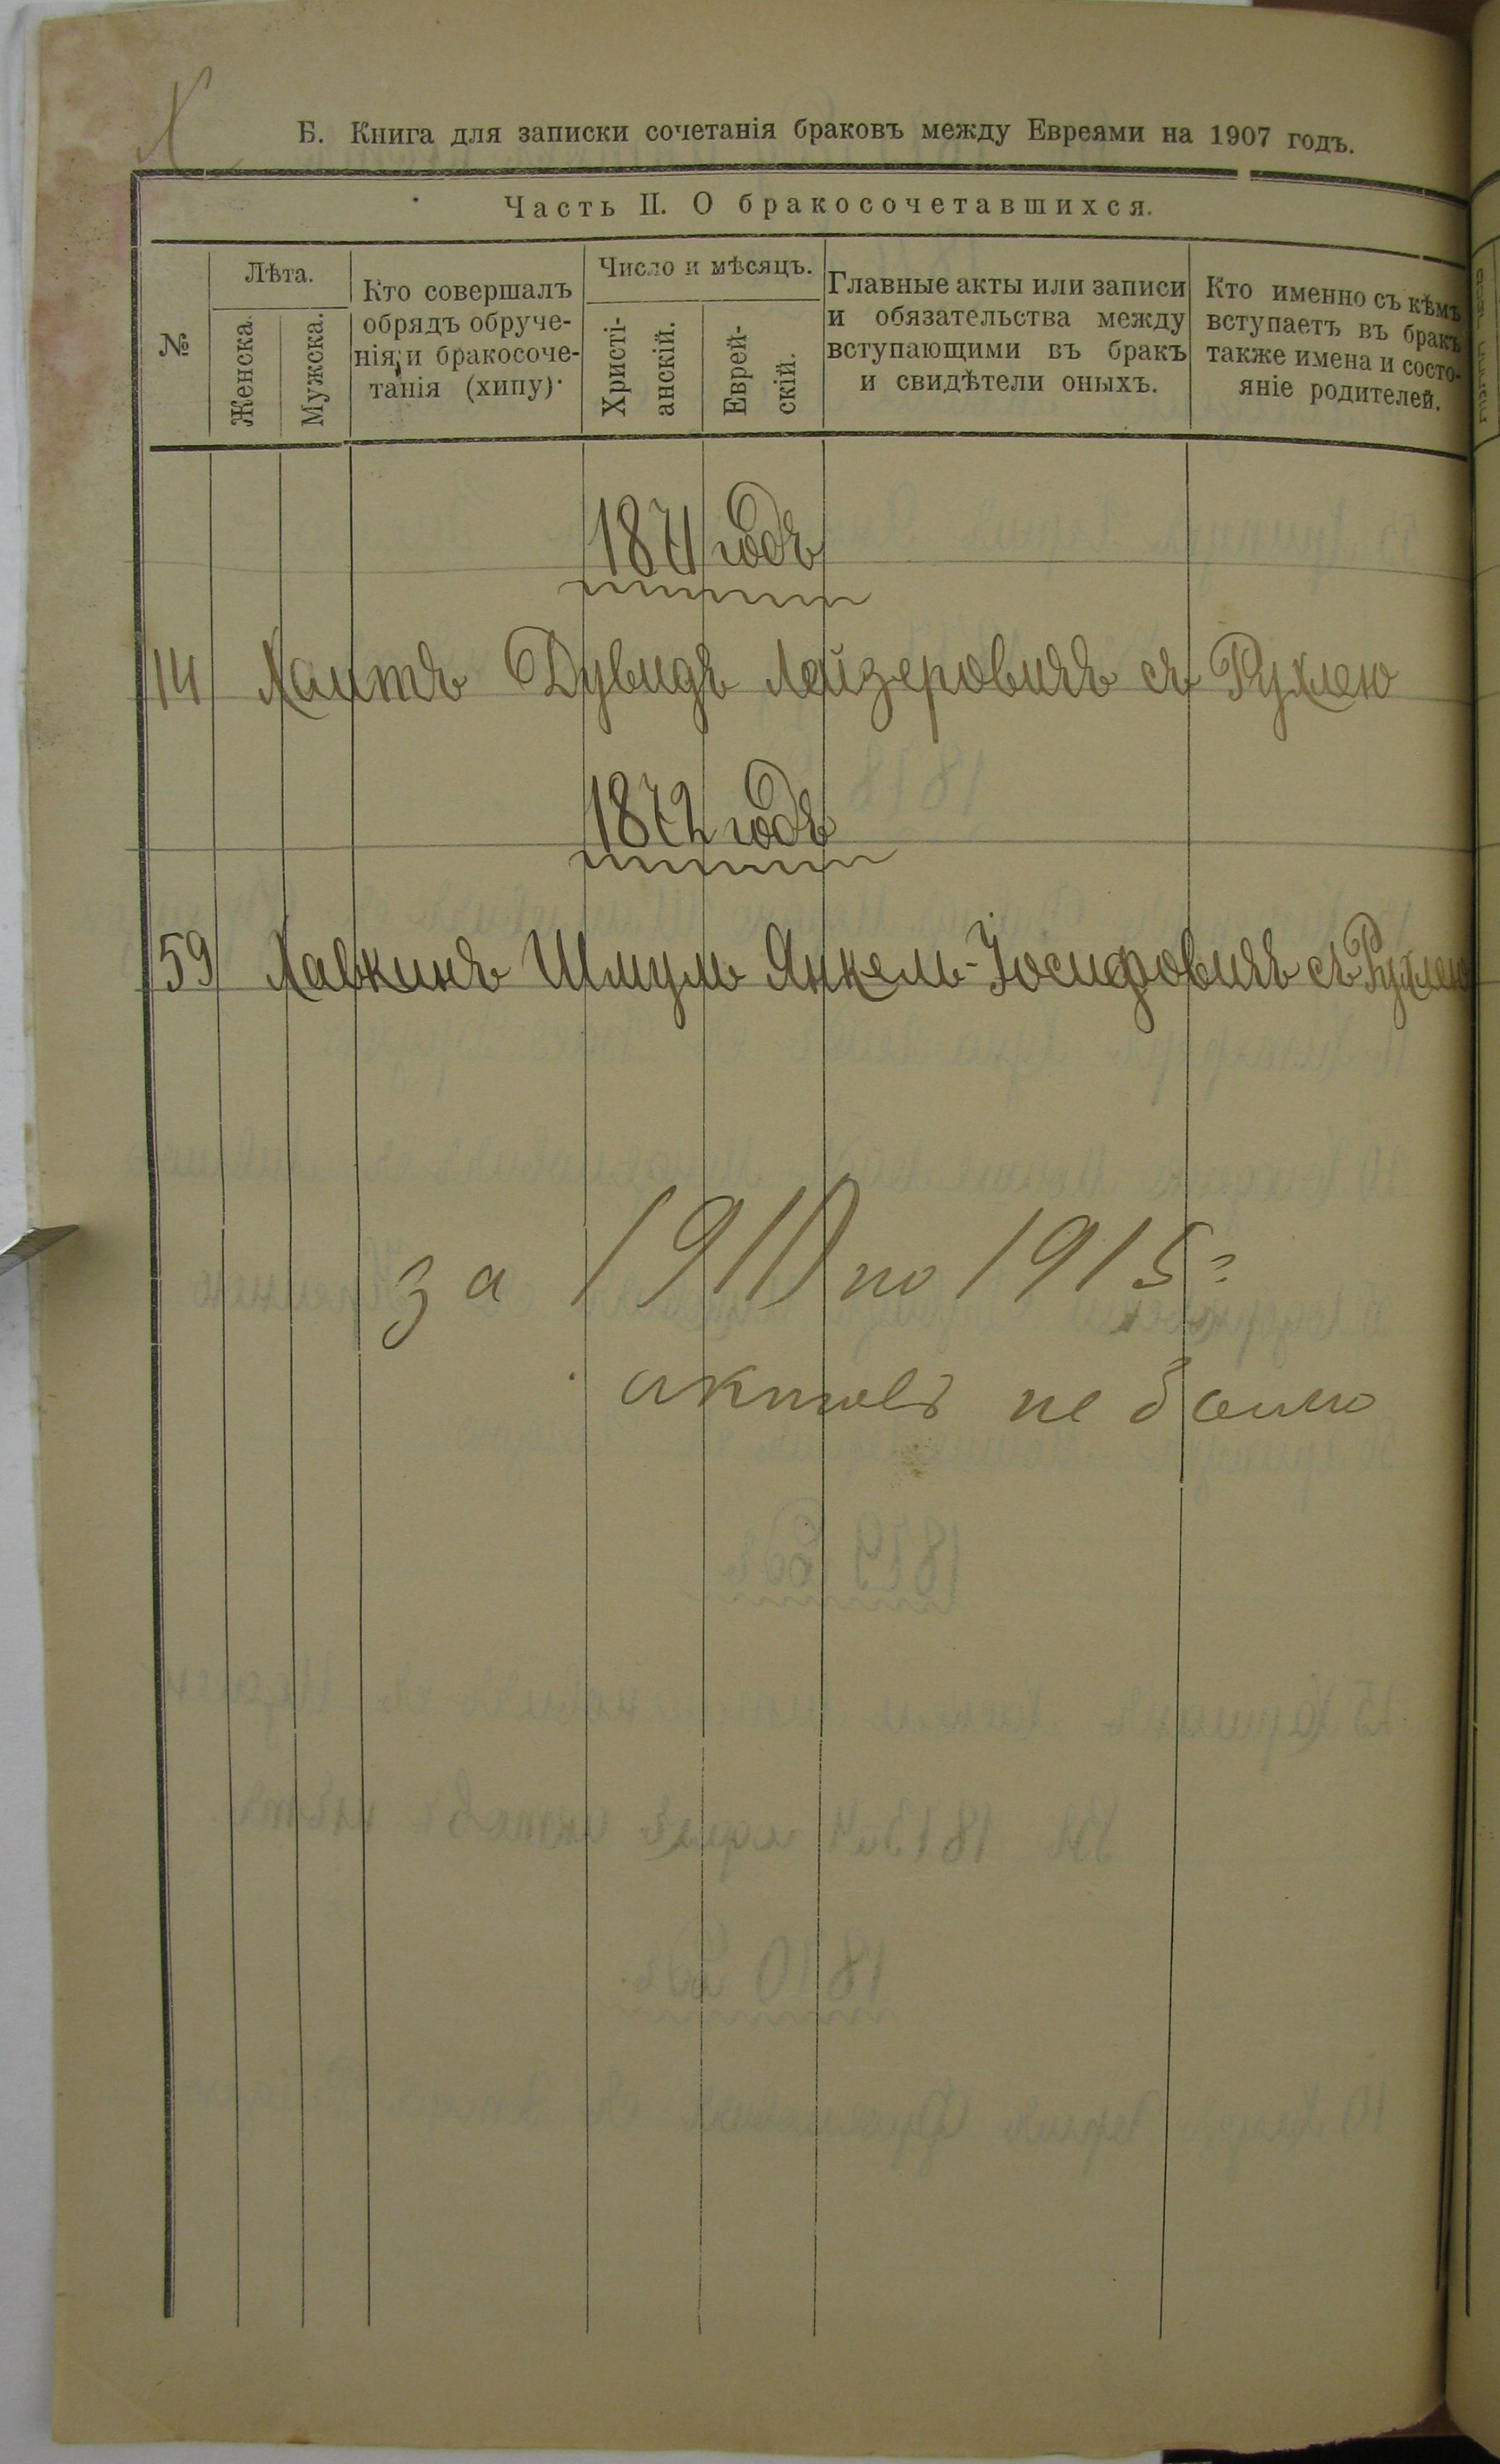 Б. Книга для записки сочетанія браковъ между Евреями на 1907 годъ.
Часть II. О бракосочетавшихся.
№
Лѣта.
Женска.
Мужска.
Кто совершалъ
обрядъ обруче-
нія и бракосоче-
танія (хипу).
Число и мѣсяцъ.
Христі-
анскій.
Еврей-
скій.
Главные акты или записи
и обязательства между
вступающими въ бракъ
и свидѣтели оныхъ.
Кто именно съ кѣмъ
вступаетъ въ бракъ
также имена и состо-
яніе родителей.
1871 годъ
14 Хаитъ Дувидъ Лейзеровичъ съ Рухлею
1872 годъ
59 Хавкинъ Шмуль Янкель-Іосифовичъ съ Рухлею
за 1910 по 1915 г
актовъ не было